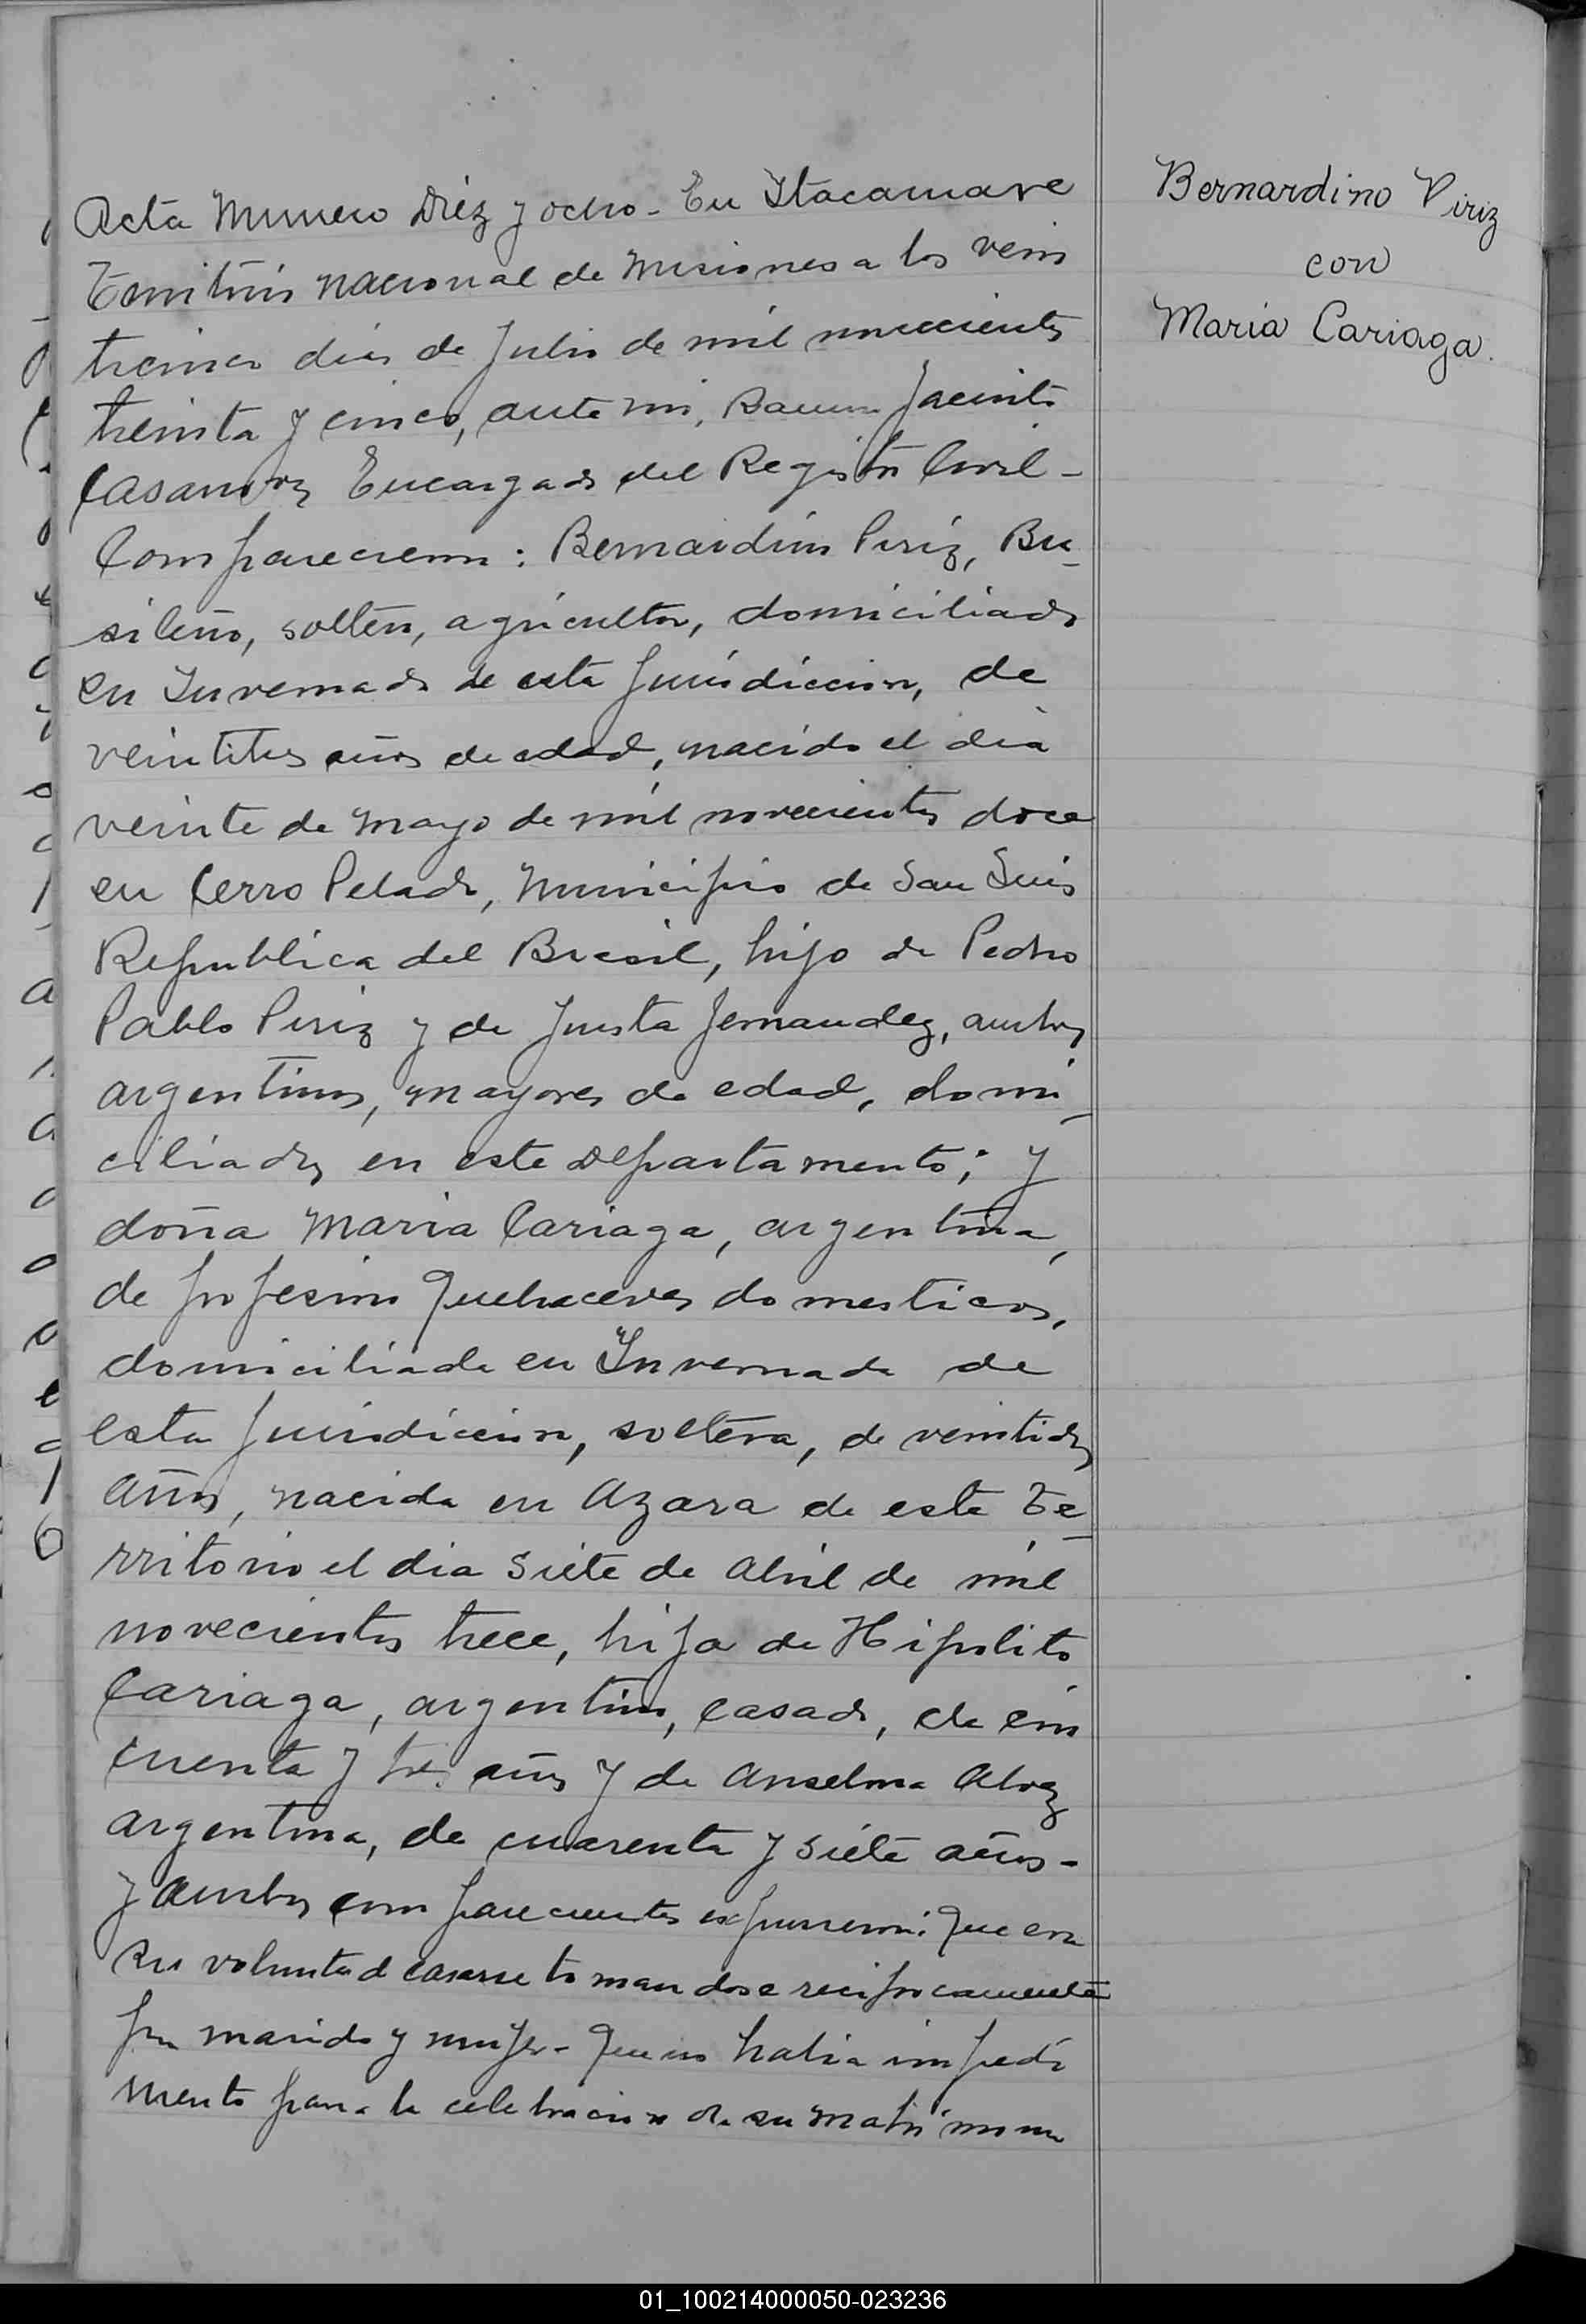 Acta Numero Diez y ocho - En Itacaruare
Territorio nacional de Misiones a los vein
dias de Julio de mil novecientos
treinta y cinco, ante mi, Ramon Jacinto
Casanova Encargado del Registro Civil -
Comparecieron : Bernardino Piriz, Bra-
sileño, soltero, agricultor, domiciliado
en Invernada de esta Jurisdiccion, de
veintitres años de edad, nacido el dia
veinte de Mayo de mil novecientos doce
en Cerro Pelado, Municipio de San Luis
Republica del Brasil, hijo de Pedro
Pablo Piriz y de Justa Fernandez, ambos
argentinos, mayores de edad, domi-
ciliados en este Departamento; y
doña Maria Cariaga, argentina,
de profesion Quehaceres domesticos,
domiciliada en Invernada de
esta Jurisdiccion, soltera, de veintidos
años, nacida en Azara de este Te-
rritorio el dia siete de Abril de mil
novecientos trece, hija de Hipolito
Cariaga, argentino, casado, de cin
cuenta y tres años y de Anselma
argentina, de cuarenta y siete años -
y ambos comparecientes expusieron: Que era
su voluntad casarse tomandose reciprocamente
por marido y mujer - Que no habia impedi
mento para la celebracion de su matrimonio
Bernardino Piriz
con
Maria Cariaga.
01_100214000050-023236